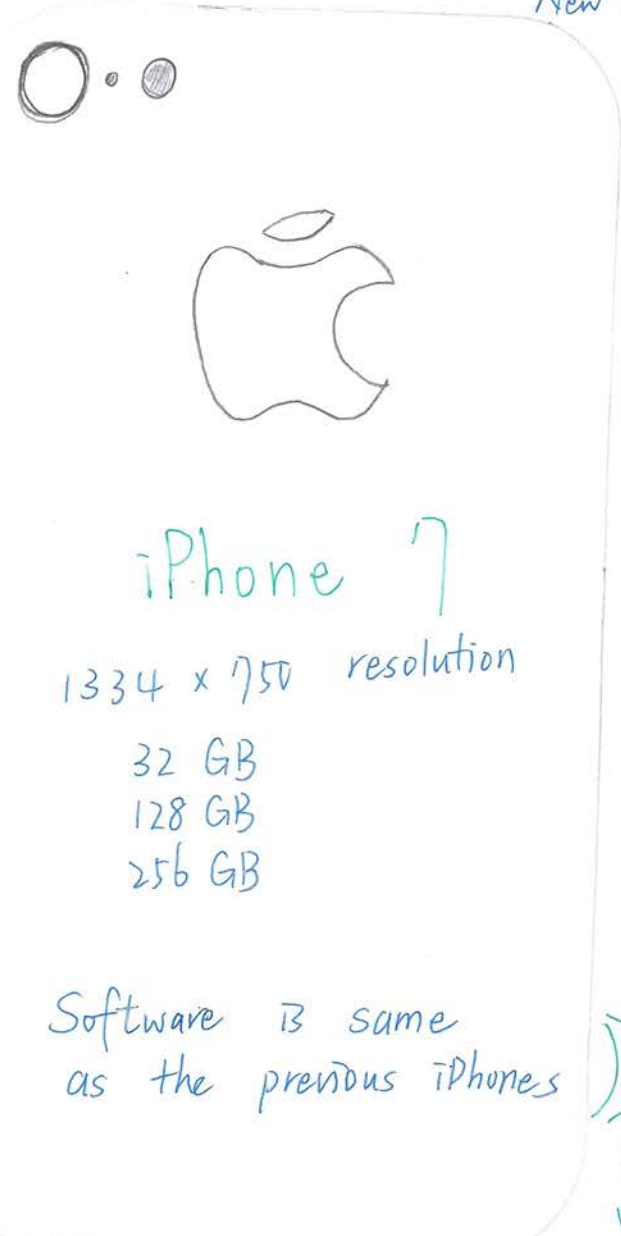 New
iPhone 7
1334 x 750 resolution
32 GB
128 GB
256 GB
Software is same
as the previous iPhones